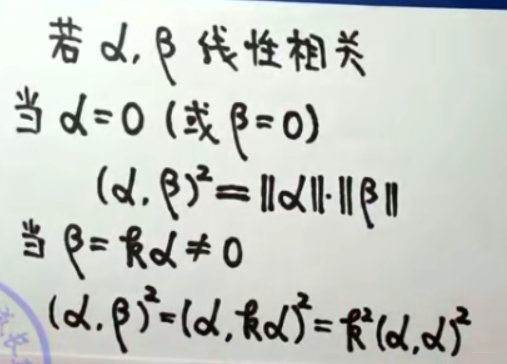 若 α, β 线性相关
当 α=0 (或 β=0)
(α, β)²=‖α‖·‖β‖
当 β=kα≠0
(α, β)²=(α, kα)²=k²(α, α)²